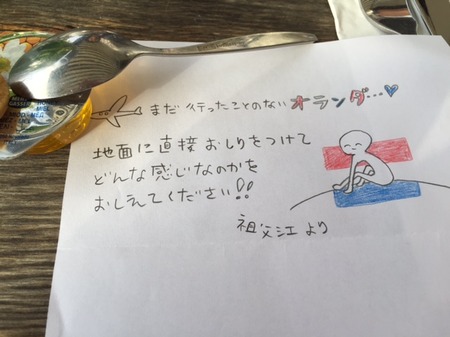 まだ行ったことのないオランダ…♥
地面に直接おしりをつけて
どんな感じなのかを
おしえてください!!
祖父江より